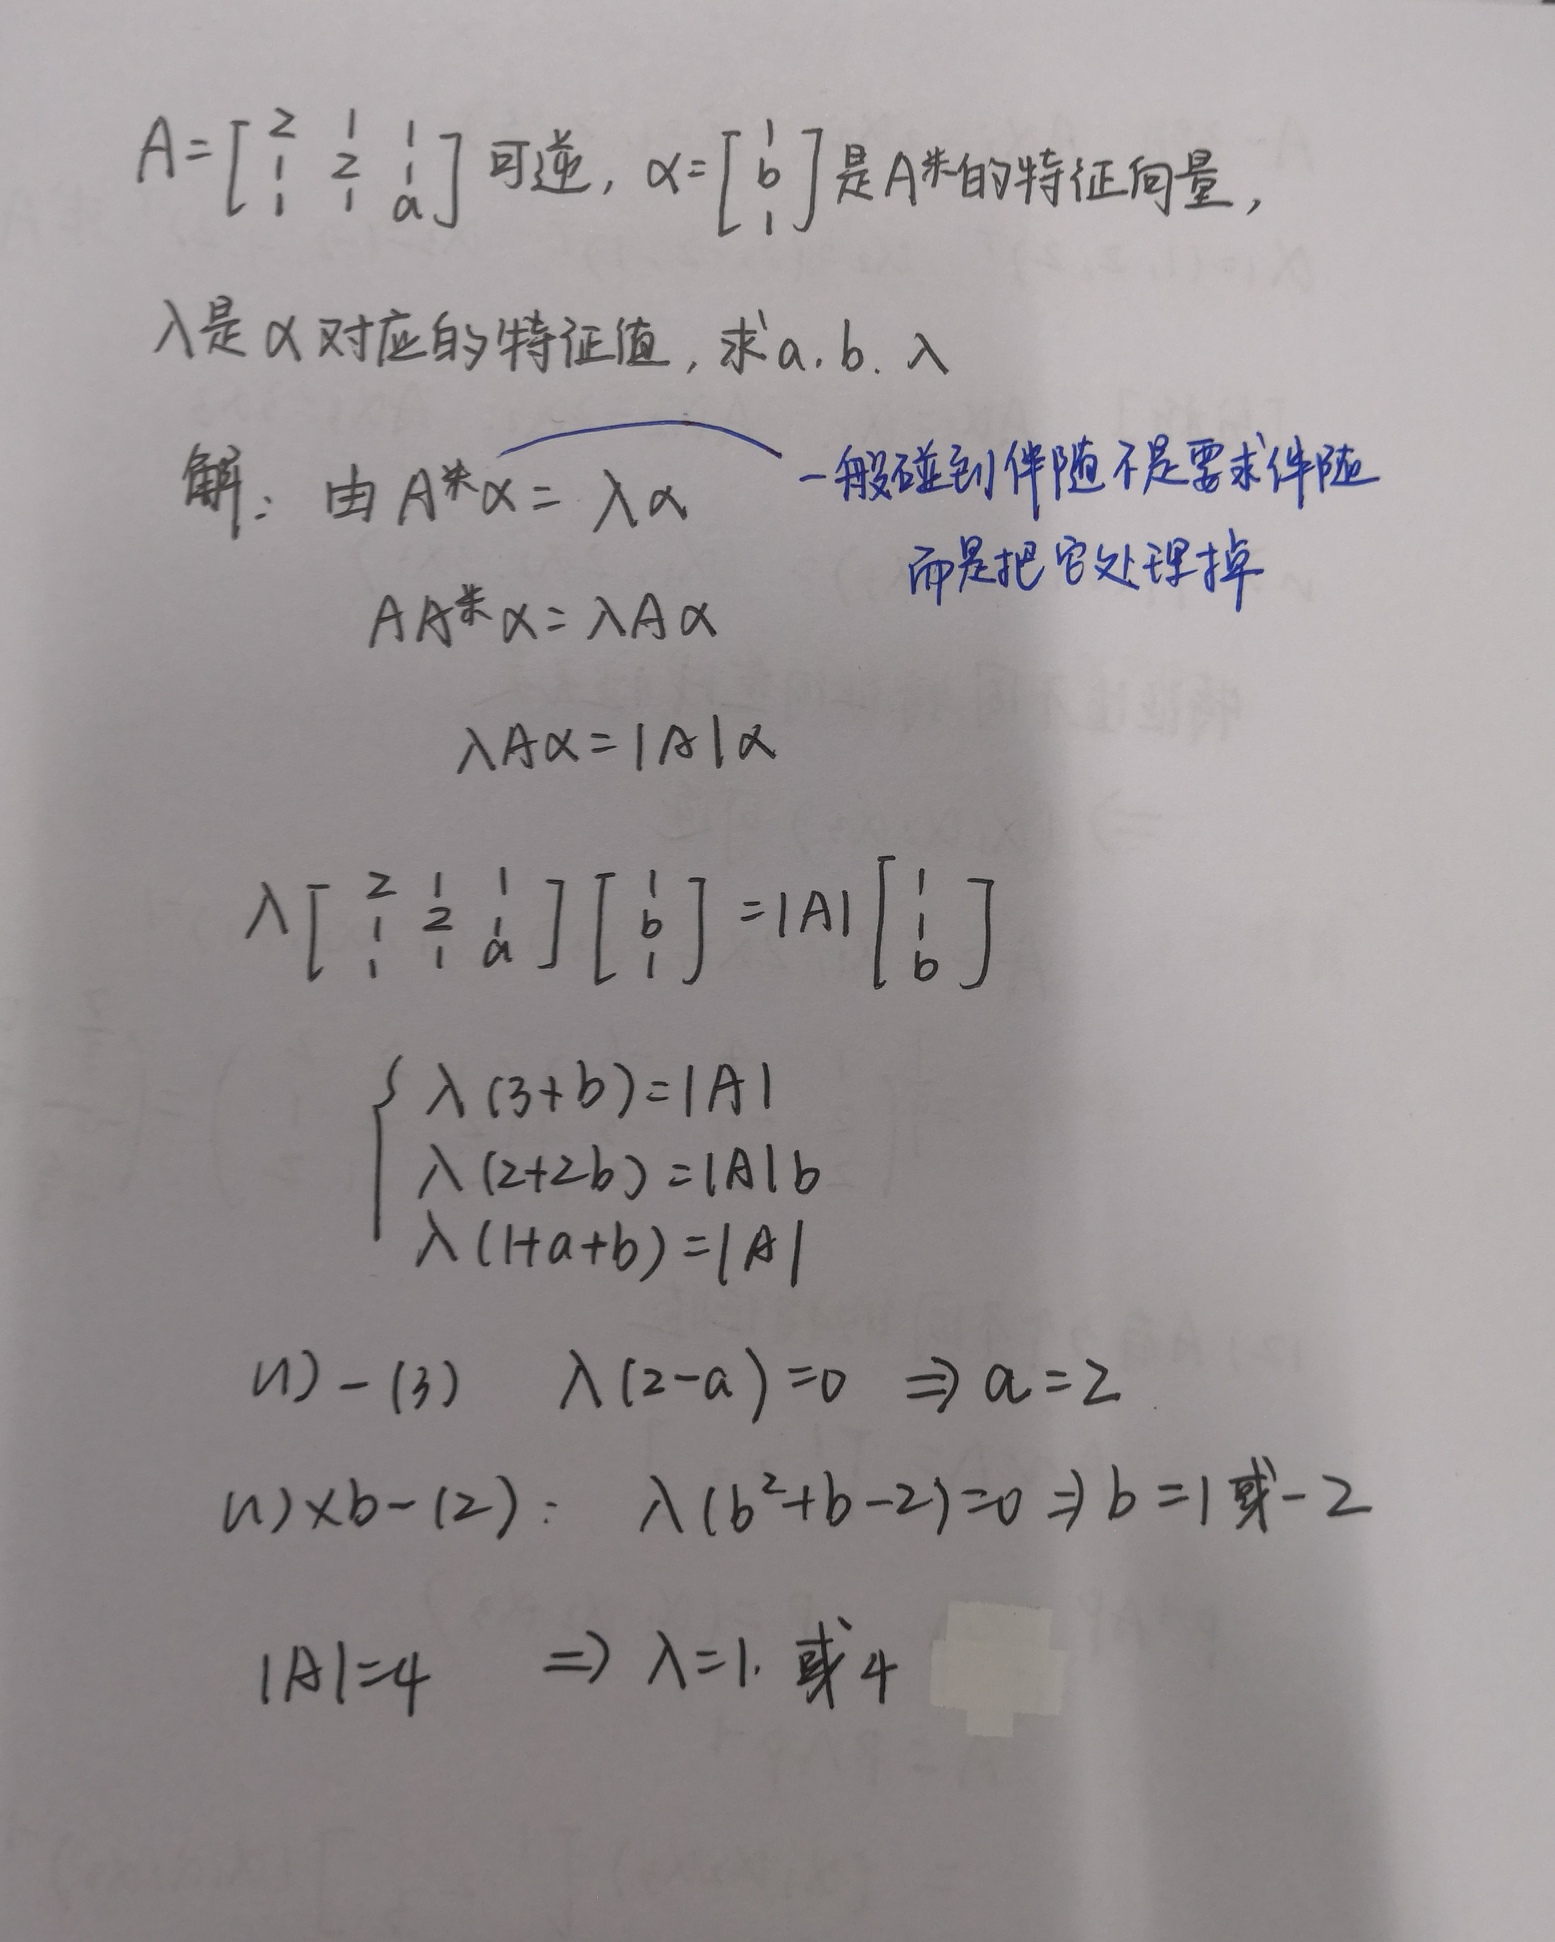 A=[2 1 1; 1 2 1; 1 1 a] 可逆, α=[1; b; 1] 是A*的特征向量,
λ是α对应的特征值, 求a.b.λ
解: 由A*α=λα
一般碰到伴随不是要求伴随
而是把它处理掉
AA*α=λAα
λAα=|A|α
λ[2 1 1; 1 2 1; 1 1 a][1; b; 1]=|A|[1; 1; b]
{λ(3+b)=|A|
λ(2+2b)=|A|b
λ(1+a+b)=|A|
(1)-(3) λ(2-a)=0 ⇒ a=2
(1)×b-(2): λ(b²+b-2)=0 ⇒ b=1或-2
|A|=4 ⇒ λ=1.或4